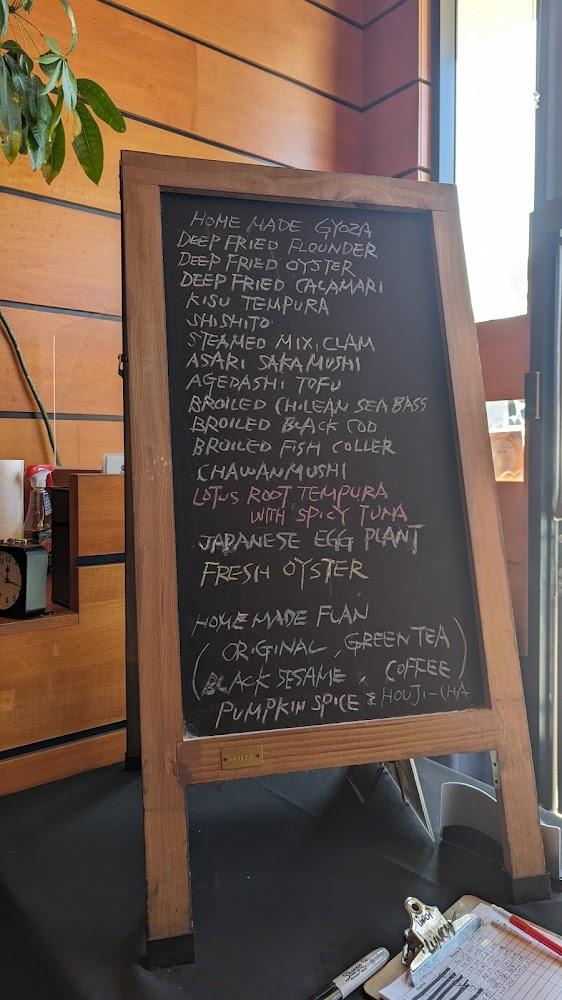 HOME MADE GYOZA
DEEP FRIED FLOUNDER
DEEP FRIED OYSTER
DEEP FRIED CALAMARI
KISU TEMPURA
SHISHITO
STEAMED MIX, CLAM
ASARI SAKAMUSHI
AGEDASHI TOFU
BROILED CHILEAN SEA BASS
BROILED BLACK COD
BROILED FISH COLLER
CHAWANMUSHI
LOTUS ROOT TEMPURA
WITH SPICY TUNA
JAPANESE EGG PLANT
FRESH OYSTER
HOMEMADE FLAN
(ORIGINAL, GREEN TEA)
(BLACK SESAME, COFFEE)
PUMPKIN SPICE & HOUJI-CHA
LUNCH
LUNCH
Sharpie